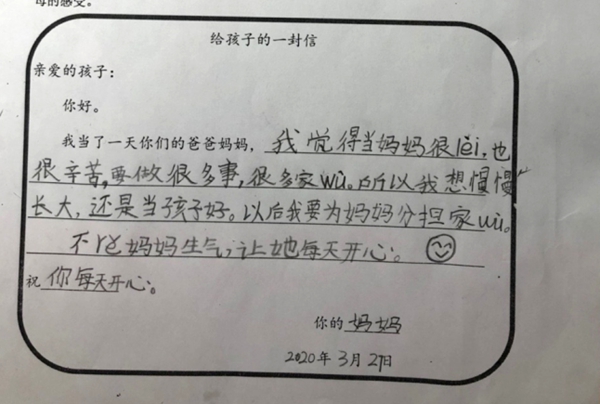 母的感受。
给孩子的一封信
亲爱的孩子：
你好。
我当了一天你们的爸爸妈妈，我觉得当妈妈很lèi，也
很辛苦，要做很多事，很多家wù。所以我想慢慢
长大，还是当孩子好。以后我要为妈妈分担家wù。
不rě妈妈生气，让她每天开心。
祝你每天开心。
你的妈妈
2020年3月27日